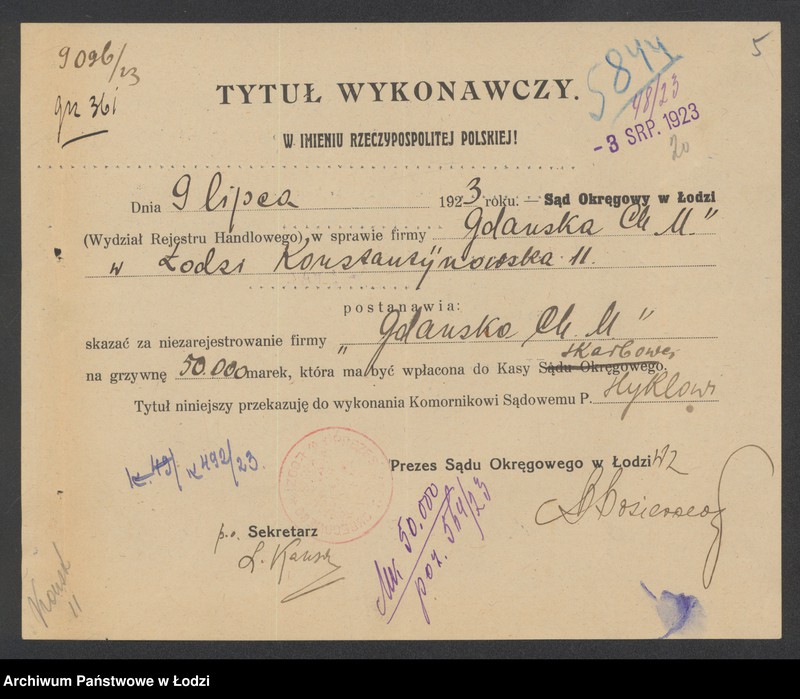 9096/23
5844
5
gr 361
TYTUŁ WYKONAWCZY.
48/23
W IMIENIU RZECZYPOSPOLITEJ POLSKIEJ!
-3 SRP. 1923
20
Dnia 9 lipca 1923 roku: — Sąd Okręgowy w Łodzi
(Wydział Rejestru Handlowego), w sprawie firmy Gdanska Ch. M."
w Łodzi Konstantynowska 11.
postanawia:
skazać za niezarejestrowanie firmy „Gdanska Ch. M."
na grzywnę 50.000 marek, która ma być wpłacona do Kasy Sądu Okręgowego. skarbowej
Tytuł niniejszy przekazuję do wykonania Komornikowi Sądowemu P. Hyklowi
492/23.
Prezes Sądu Okręgowego w Łodzi wz
p.o. Sekretarz
Mk. 50.000
poz. 564/23
Konst
11
Archiwum Państwowe w Łodzi